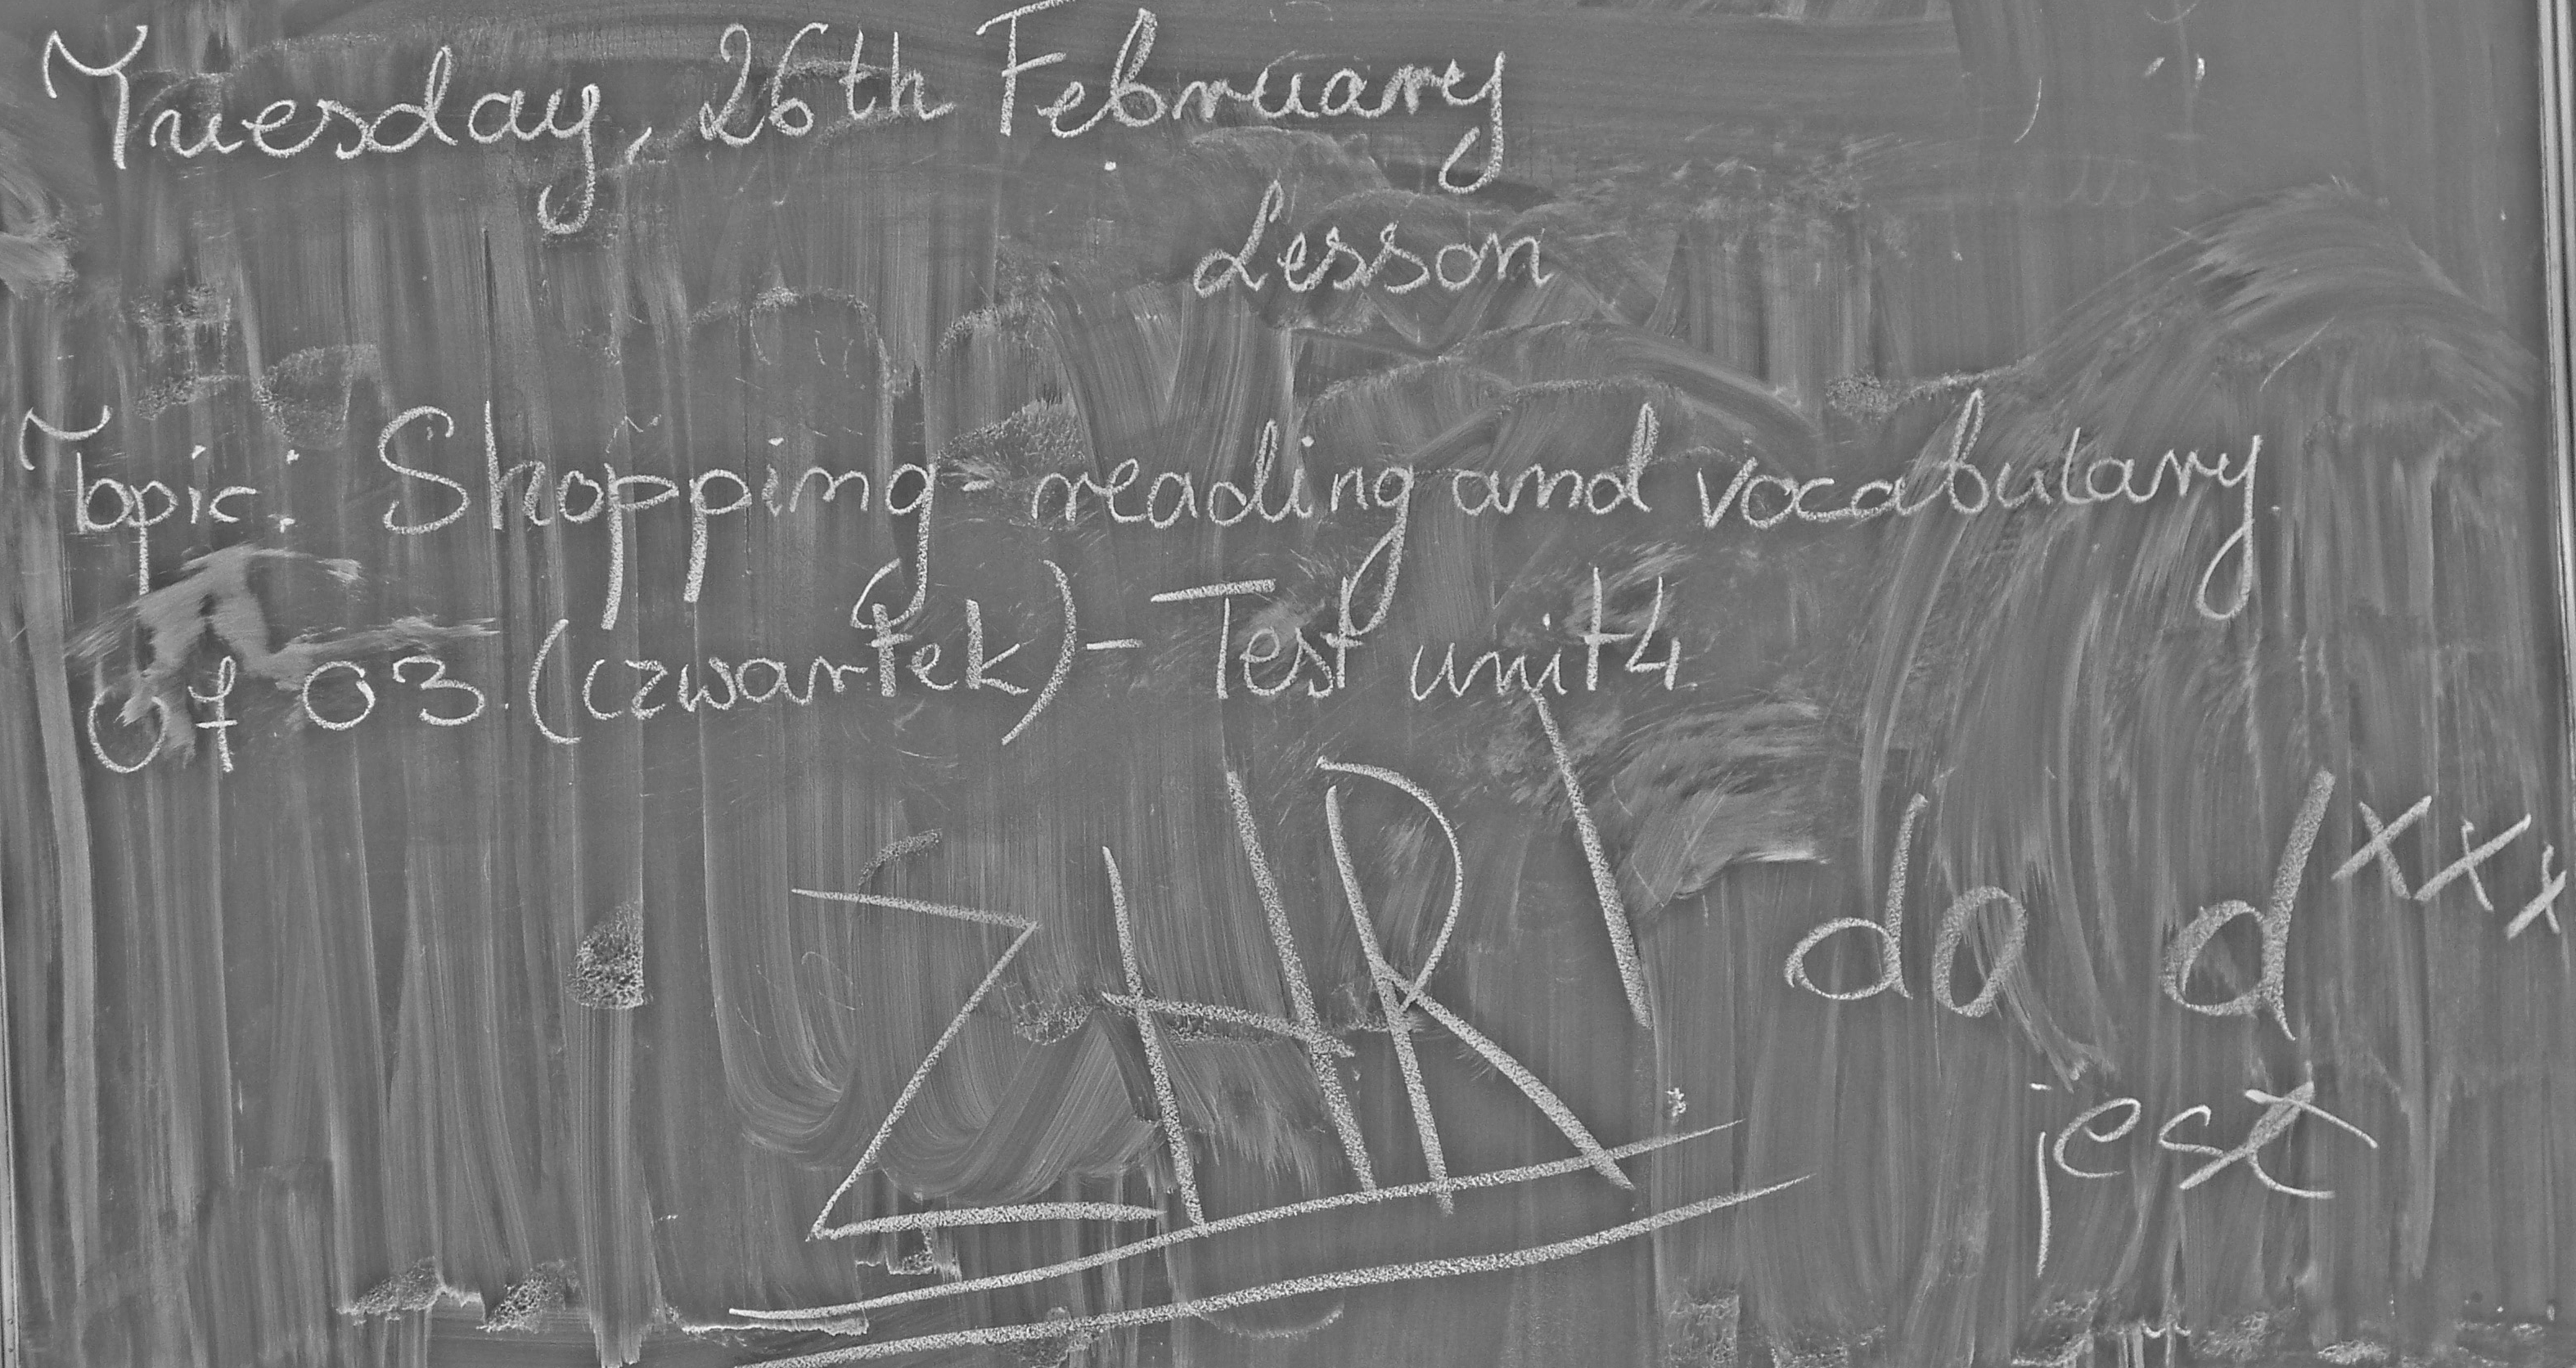 Tuesday, 26th February
Lesson
Topic: Shopping - reading and vocabulary.
07 03 (czwartek) - Test unit 4
ZHR! do dxxx
jest